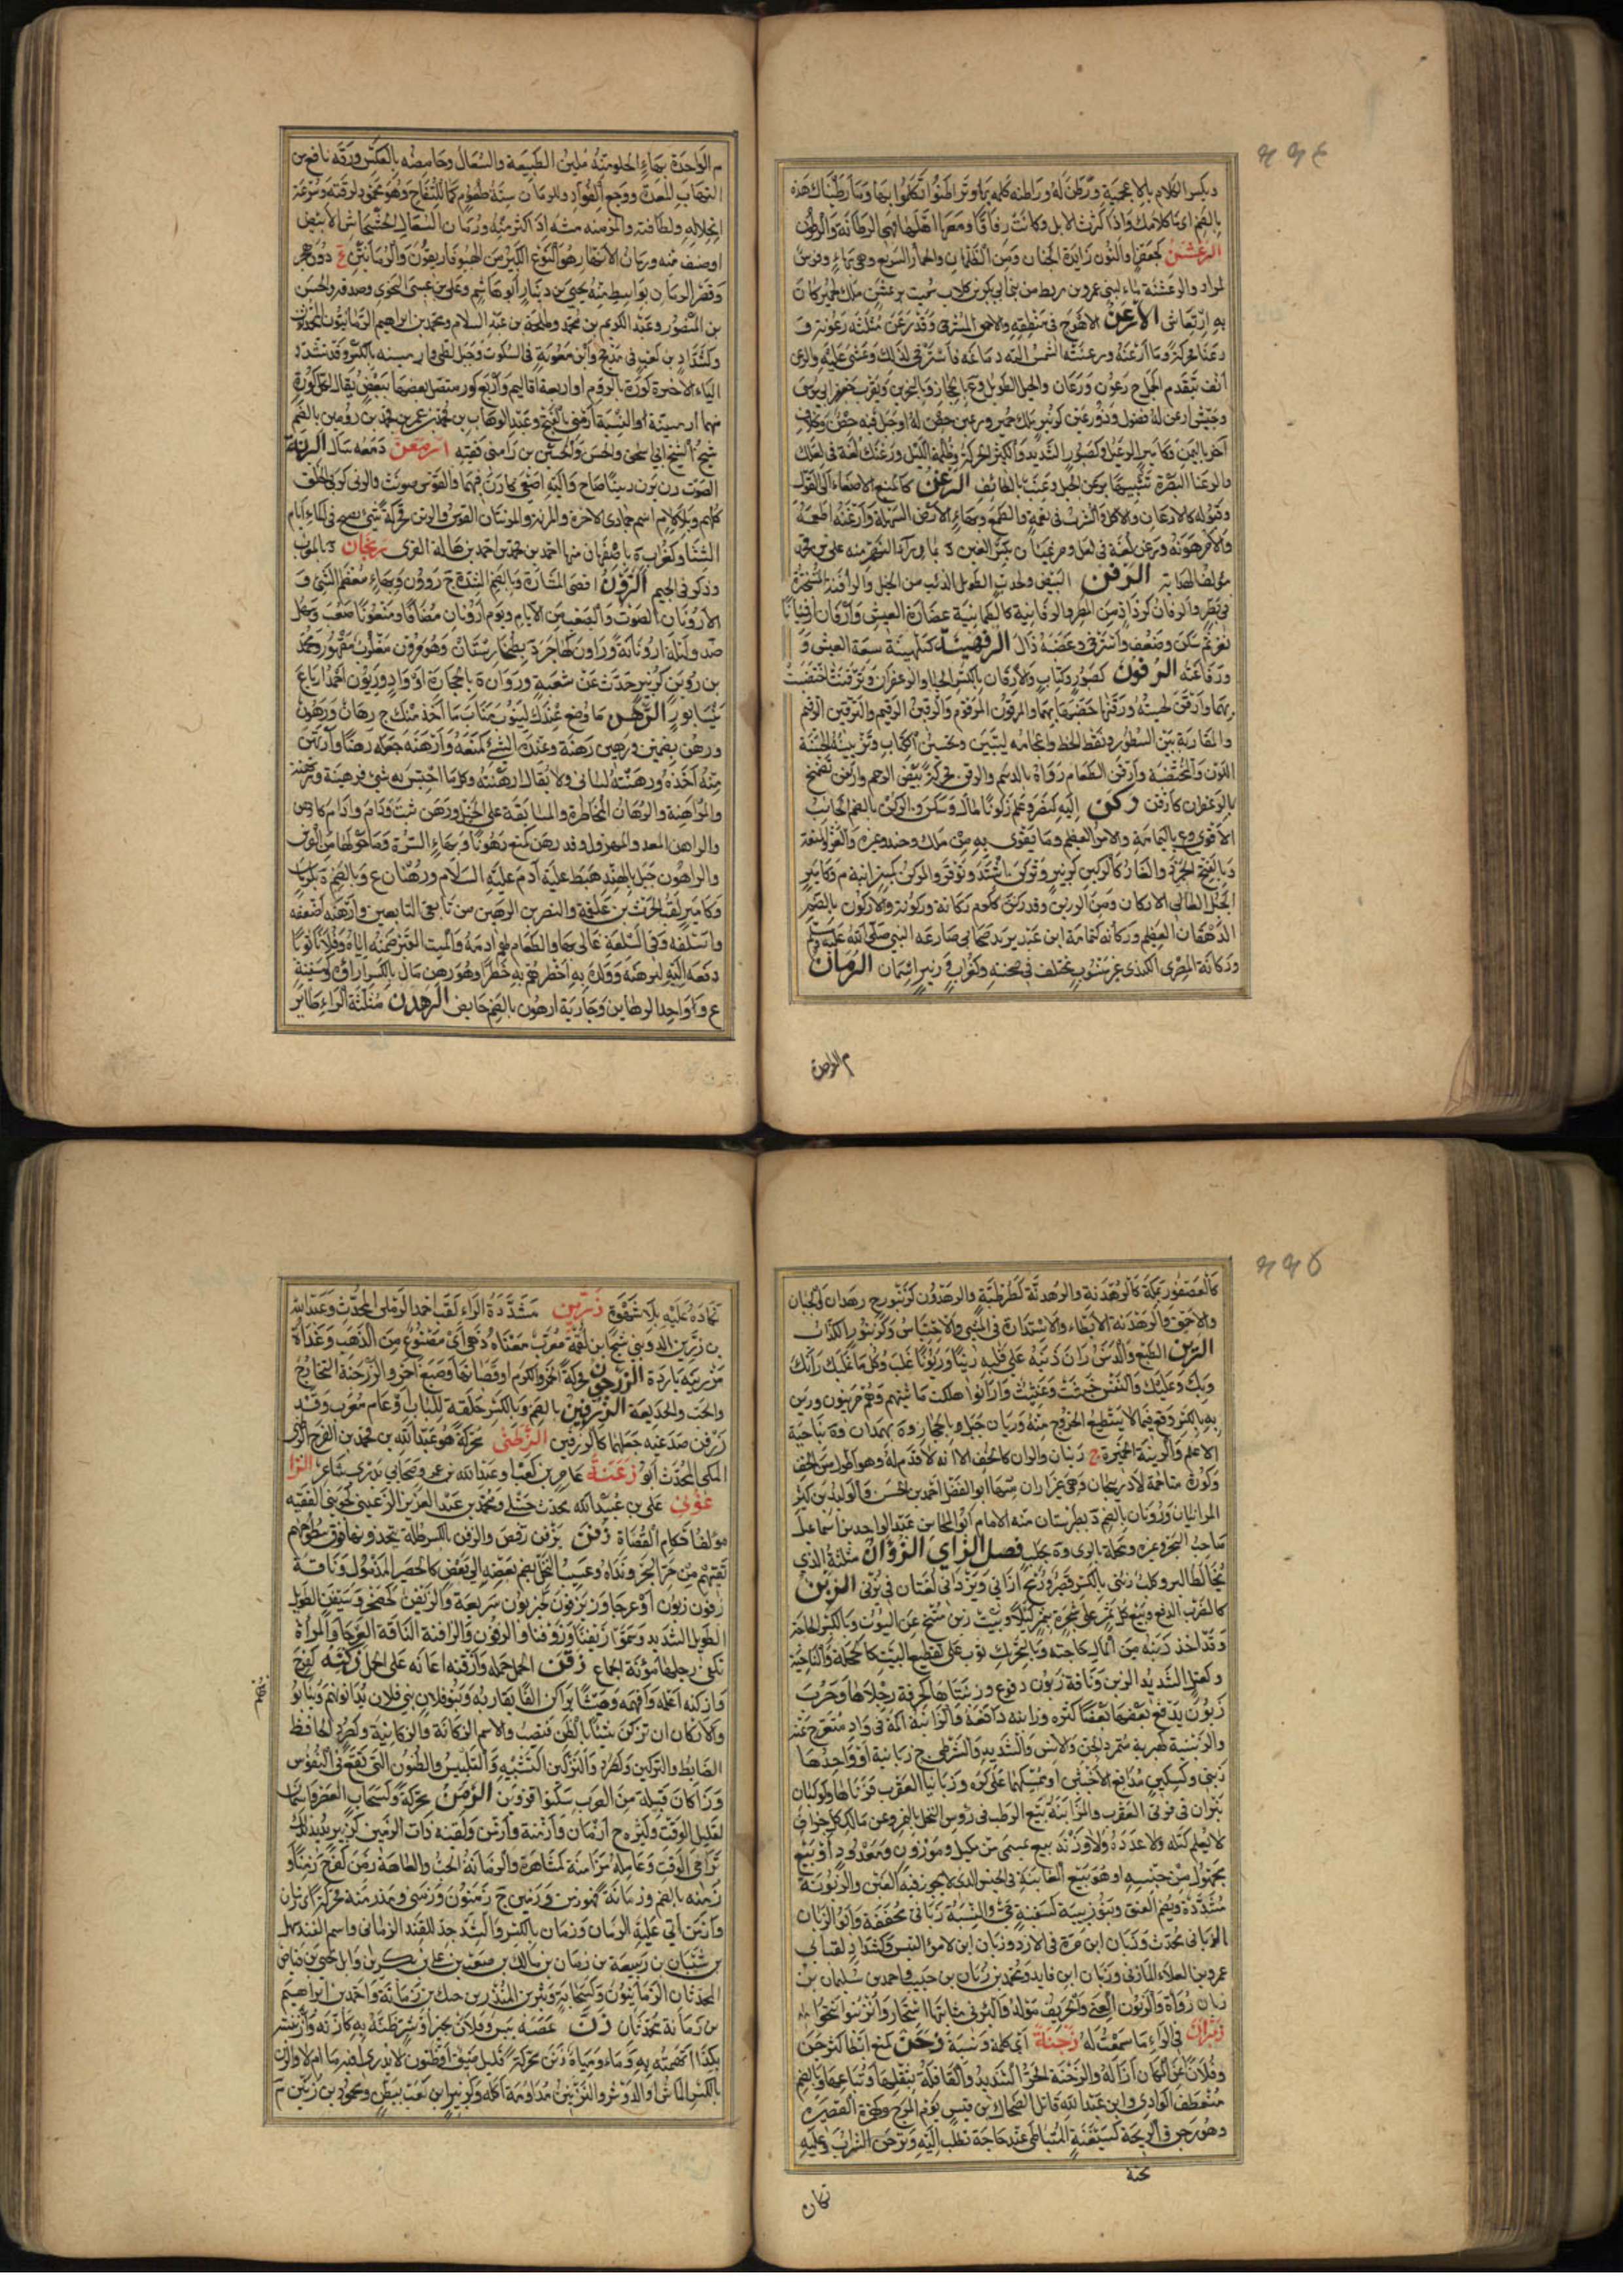 ويكسر الكلام بالاعجمية ورطن له وراطنه كلمه بها وتراطنوا تكلموا بها وما رطيناك هذه
بالضم اى ما كلامك واذا كثرت الابل وكانت رفاقا ومعها اهلها فهى الرطانة والرطون
الرعشن كجعفر والنون زايدة الجبان ومن الظلمان والجمال السريع وهى بهاء وفرس
لمراد والرعشنة ماء لبنى عمرو بن قريط من بنى ابى بكر بن كلاب سميت برعشن ملك لحمير كان
به ارتعاش الارعن الاهوج فى منطقه والاحمق المسترخى وقد رعن مثلثة رعونة و
رعنا محركة وما ارعنه ورعنته الشمس المت دماغه فاسترخى لذلك وغشى عليه والرعن
انف يتقدم الجبل ج رعون ورعان والجبل الطويل و ع بالحجاز وبالبحرين وبقرب حفر ابى موسى
وجيش ارعن له فضول وذو رعين كزبير ملك حمير ورعين حصن له او جبل فيه حصن ومخلاف
آخر باليمن وكامير الرعيل وكصبور الشديد والكثير الحركة وظلمة الليل ورعنك لغة فى لعلك
والرعنا البصرة تشبيها برعن الجبل وعنب بالطائف الرغن كالمنع الاصغاء الى القول
وقبوله كالارغان والاكل والشرب فى نعمة والطمع وبهاء الارض السهلة وارغنه اطمعه
والامر هونه ورغن لغة فى لعل ومرغينان بكسر الغين د بما وراء النهر منه على بن
مؤلف الهداية الرفن البيض ولحدب الطويل الذنب من الخيل والرافنة المتبخترة
نفر ثم سكن وضعف واسترخى وغضبه زال الرفهنية كبلهنية سعة العيش و
ورفاغته الرقون كصبور وكتاب والارقان بالكسر الحناء والزعفران وترقنت اختضبت
بهما وارقن لحيته ورقنها خضبها بهما والمرقون المرقوم والرقين الرقيم والترقين الترقيم
والمقاربة بين السطور ونقط الخط واعجامه ليتبين وتحسين الكتاب وتزيينه الحسنة
اللون والمختضبة وارقن الطعام رواه بالدسم والرقن محركة بيض الرخم وارقن تضمخ
بالزعفران كارتقن ركن اليه كنصر وعلم ركونا مال وسكن والركن بالضم الجانب
الاقوى و ع باليمامة والامر العظيم وما يقوى به من ملك وجند وغيره والعز والمنعة
وبالفتح الجرذ والفار كالركين كزبير وتركن اشتد وتوقر والمركن كمنبر آنية م وكامير
الجبل العالى الاركان ومن الرزين وقد ركن ككرم ركانة وركونة والاركون بالضم
الدهقان العظيم وركانة كثمامة ابن عبد يزيد صحابى صارعه النبى صلى الله عليه وسلم
وركانة المصرى الكندى غير منسوب مختلف فى صحبته وكغراب وزبير اسمان الرمان
م الواحدة
م الواحدة بهاء الحلو منه ملين الطبيعة والسعال وحامضه بالعكس ومزه نافع من
التهاب المعدة ووجع الفواد وللرمان ستة طعوم كما للتفاح وهو محمود لرقته وسرعة
انحلاله ولطافته والمرمنة منبته اذا كثر منه ورمان السعال الخشخاش الابيض
او صنف منه ورمان الانهار هو النوع الكبير من الهيوفاريقون والرمانتان ع دون هجر
وقصر الرمان بواسط منه يحيى بن دينار ابو هاشم وعلى بن عيسى النحوى وصدقة والحسن
بن المنصور وعبد الكريم بن محمد وطلحة بن عبد السلام ومحمد بن ابراهيم الرمانيون المحدثون
وكشداد بن كعب فى مذحج وابن معوية فى السكون وجبل لطى وارمينية بالكسر وقد تشدد
الياء الاخيرة كورة بالروم او اربعة اقاليم واربع كور متصل بعضها ببعض يقال لكل كورة
منها ارمينية والنسبة ارمنى بالفتح وعبد الوهاب بن محمد بن عمر بن محمد بن رومين بالضم
شيخ الشيخ ابى اسحق والحسن والحسين بن رامين فقيه ارمعن دمعه سال الرنة
الصوت رن يرن رنينا صاح واليه اصغى كارن فيهما والقوس صوتت والرنى كربى الخلق
كلهم وبلا لام اسم جمادى الاخرة والمرنة والمرنان القوس والرنن محركة شئ يصيح فى الماء ايام
الشتاء وكغراب ة باصفهان منها احمد بن محمد بن احمد بن هالة المقرى رنجان د بالمغرب
وذكر فى الجيم الرون اقصى المشارة وبالضم الشدة ج رؤون وبهاء معظم الشئ و
الارونان الصوت والصعب من الايام ويوم ارونان مضافا ومنعوتا صعب وسهل
ضد وليلة ارونانة وراون كهاجر د بطخارستان وهو مرون مغلوب مقهور ومحمد
بن روين كزبير حدث عن شعبة وروانة بالحجاز او واد وريون احد ارباع
نيسابور الرهن ما وضع عندك لينوب مناب ما اخذ منك ج رهان ورهون
ورهن بضمتين ورهين رهنه وعنده الشئ كمنعه وارهنه جعله رهنا وارتهن
منه اخذه ورهنته لسانى ولا يقال ارهنته وكل ما احتبس به شئ فرهينة ومرتهنه
والمراهنة والرهان المخاطرة والمسابقة على الخيل ورهن ثبت ودام وادام كارهن
والراهن المعد والمهزول وقد رهن كمنع رهونا وبهاء السرة وما حولها من الفرس
والراهون جبل بالهند هبط عليه آدم عليه السلام ورهنان ع وبالضم ة بكرمان
وكامير لقب الحرث بن علقمة والنضر بن الرهين من تابعى التابعين وارهنه اضعفه
واسلفه وفى السلعة غالى بها والطعام لهم ادامه والميت القبر ضمنه اياه وفلانا ثوبا
دفعه اليه ليرهنه وولده به اخطرهم به خطرا وهو رهن مال بالكسر ازاؤه وكسفينة
ع واواحد الرهاين وجارية ارهون بالضم حايض الرهدن مثلثة الراء طاير
كالعصفور بمكة كالرهدنة والرهدنة كطرطبة والرهدون كزنبور ج رهادن والجبان
والاحمق والرهدنة الابطاء والاستدارة فى المشى والاحتباس وكزنبور الكذاب
الرين الطبع والدنس ران ذنبه على قلبه رينا وريونا غلب وكل ما غلبك رانك
وبك وعليك والنفس خبثت وغثيت وارانوا هلكت ماشيتهم وهم مرينون ورين
به بالكسر وقع فيما لا يستطيع الخروج منه وريان جبل بالحجاز و ة بهمدان و ة بناحية
الاعلم والرينة الخمرة ج رينات والران كالخف الا انه لا قدم له وهو اطول من الخف
وكورة متاخمة لاذربيجان وهى غير اران منها ابو الفضل احمد بن الحسن والوليد بن كثير
الرانيان ورويان بالضم د بطبرستان منه الامام ابو المحاسن عبد الواحد بن اسماعيل
صاحب البحر وغيره ومحلة بالرى و ة بحلب فصل الزاى الزؤان مثلثة الذى
يخالط البر وكلب زئنى بالكسر قصير ورمح ازانى ويزانى لغتان فى يزنى الزبن
كالضرب الدفع وبيع كل ثمر على شجره بثمر كيلا وبيت زبن متنح عن البيوت وبالكسر الحاجة
وقد اخذ زبنه من المال حاجته وبالتحريك ثوب على تقطيع البيت كالحجلة والناحية
وكعتل الشديد الزبن وناقة زبون دفوع وزبنتاها كحزقة رجلاها وحرب
زبون يدفع بعضها بعضا كثرة وزابنه دافعه والزابنة اكمة فى واد منعرج عنه
والزبنية كهبرية متمرد الجن والانس والشديد والشرطى ج زبانية او واحدها
زبنى وكسكين مدافع الاخبثين او ممسكهما على كره وزبانيا العقرب قرناها وكوكبان
نيران فى قرنى العقرب والمزابنة بيع الرطب فى رؤس النخل بالتمر وعن مالك كل جزاف
لا يعلم كيله ولا عدده ولا وزنه بيع بمسمى من مكيل وموزون ومعدود او بيع
مجهول من جنسه او هو بيع المغابنة فى الجنس الذى لا يجوز فيه الغبن والزبونة
مشددة ويضم العنق وبنو زبينة كسفينة حى والنسبة زبانى مخففة وابو الزبان
الزبانى محدث وزبان ابن مرة فى الازد وزبان ابن لامرؤ القيس وكشداد لقب ابى
عمرو بن العلاء المازنى وزبان ابن فايد ومحمد بن زبان بن حبيب واحمد بن سليمان بن
زبان رواة والزبون الغبى والحريف مولد والبئر فى مثابتها استئخار وانزبنوا تنحوا
زبران فى الراء ما سمعت له زجنة اى كلمة ونبسة زحن كمنع ابطأ كتزحن
وفلانا عن المكان ازاله والزحنة الحر الشديد والقافلة بثقلها وتباعها وبالضم
منعطف الوادى وابن عبد الله قاتل الضحاك بن قيس يوم المرج وكهمزة القصير
وهو زحن ة الزيحنة كسيفنة المتباطى عند حاجة تطلب اليه وتزحن الشراب وعليه
تكان
تكاره عليه بلا شهوة زربن مشددة الراء لقب احمد الرملى المحدث وعبد الله
مزرينة باردة الزرجون محركة الخمر والكرم او قضبانها وصبغ احمر والزرجنة التخارج
والخب والخديعة الزرفين بالضم وبالكسر حلقة للباب او عام معرب وقد
زرفن صدغيه جعلهما كالزرفين الزطنى محركة هو عبد الله بن محمد بن الفرج
المكى المحدث ابو زعنة عامر بن كعب او عبد الله بن عمرو صحابى بدرى شاعر الزا
غونى على بن عبيد الله محدث حنبلى ومحمد بن عبد العزيز الزغينى كزبيرى الفقيه
مؤلف احكام القضاة زفن يزفن رقص والزفن بالكسر ظلة يتخذونها فوق سطوحهم
تقيهم من حر البحر ونداه وعسيب النخل يضم بعضه الى بعض كالحصير المرمول وناقة
زفون زبون او عرجا وزيزفون كحيزبون سريعة والزيفن كهضجم وسيفن الطويل
الطويل الشديد وسموا زيفنا وزوفنا والزفون والزافنة الناقة العرجا والمراة
تكفى رجلها مؤنة الجماع زقن الحمل حمله وازقنه اعانه على الحمل زكنه كفرح
وازكنه اعلمه وافهمه الفا يقاربه وبنو فلان بنى فلان يدانونهم ويثابنو
والازكان ان تزكن شيئا بالظن فتصيب والاسم الزكانة والزكانية وكصرد الحافظ
الضابط والتزكين والتزكين التشبيه والتلبيس والظنون التى تقع فى النفوس
وزاكان قبيلة من العرب سكنوا قزوين الزمن محركة وكسحاب العصر واسمان
لقليل الوقت وكثيره ج ازمان وازمنة وازمن ولقيته ذات الزمين كزبير يريد بذلك
تراخى الوقت وعامله مزامنة كمشاهرة والزمانة الحب والعاهة زمن كفرح زمنا و
زمنة بالضم وزمانة فهو زمن وزمين ج زمنون وزمنى ومذ زمنة محركة اى زمان
وازمن اتى عليه الزمان وزمان بالكسر والشد جد للفند الزمانى واسم الفند شهل
بن شيبان بن ربيعة بن زمان بن مالك بن صعب بن على بن بكر بن وائل
المحدثان الزمانيون وكسحابة بشر بن المنذر بن زمانة واحمد بن ابراهيم
بن زمانة محدثان زن عصبه يبس وفلانا بخير او شر ظنه به كازنه وازننته
بكذا اتهمته به وماء ومياه زنن محركة قليل ضيق
بالكسر الماش او الدوسر والتزنين مداومة اكله وكزبير ابن كعب بطن ومحمود بن زنين